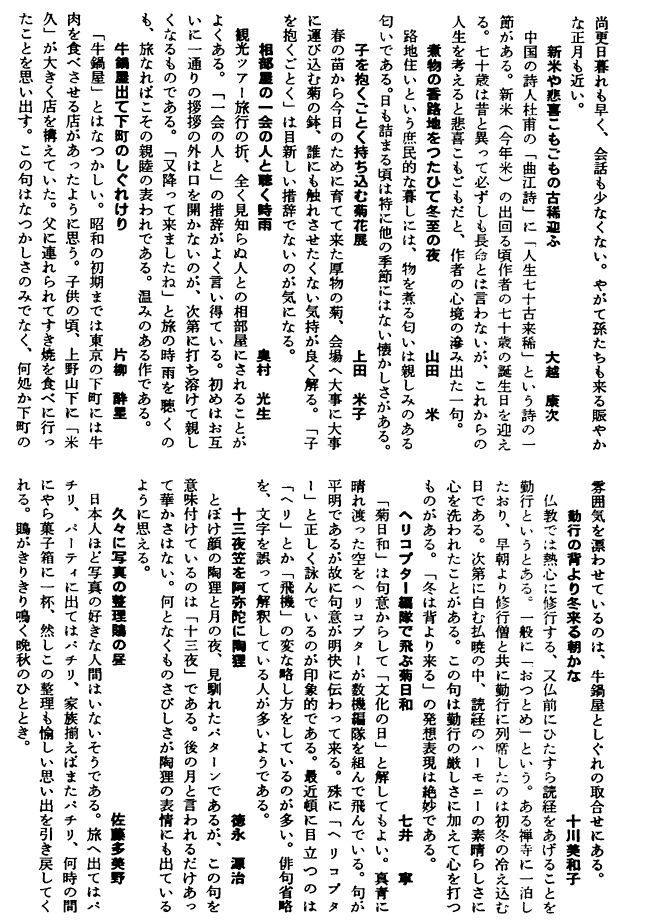 尚更日暮れも早く、会話も少なくない。やがて孫たちも来る賑やか
な正月も近い。
新米や悲喜こもごもの古稀迎ふ　大越　康次
中国の詩人杜甫の「曲江詩」に「人生七十古来稀」という詩の一
節がある。新米（今年米）の出回る頃作者の七十歳の誕生日を迎え
る。七十歳は昔と異って必ずしも長命とは言わないが、これからの
人生を考えると悲喜こもごもだと、作者の心境の滲み出た一句。
煮物の香路地をつたひて冬至の夜　山田　米
路地住いという庶民的な暮しには、物を煮る匂いは親しみのある
匂いである。日も詰まる頃は特に他の季節にはない懐かしさがある。
子を抱くごとく持ち込む菊花展　上田　米子
春の苗から今日のために育てて来た厚物の菊、会場へ大事に大事
に運び込む菊の鉢、誰にも触れさせたくない気持が良く解る。「子
を抱くごとく」は目新しい措辞でないのが気になる。
相部屋の一会の人と聴く時雨　奥村　光生
観光ツアー旅行の折、全く見知らぬ人との相部屋にされることが
よくある。「一会の人と」の措辞がよく言い得ている。初めはお互
いに一通りの挨拶の外は口を開かないのが、次第に打ち溶けて親し
くなるものである。「又降って来ましたね」と旅の時雨を聴くの
も、旅なればこその親睦の表われである。温みのある作である。
牛鍋屋出て下町のしぐれけり　片柳　酔星
「牛鍋屋」とはなつかしい。昭和の初期までは東京の下町には牛
肉を食べさせる店があったように思う。子供の頃、上野山下に「米
久」が大きく店を構えていた。父に連れられてすき焼を食べに行っ
たことを思い出す。この句はなつかしさのみでなく、何処か下町の
雰囲気を漂わせているのは、牛鍋屋としぐれの取合せにある。
勤行の背より冬来る朝かな　十川美和子
仏教では熱心に修行する、又仏前にひたすら読経をあげることを
勤行というとある。一般に「おつとめ」という。ある禅寺に一泊し
たおり、早朝より修行僧と共に勤行に列席したのは初冬の冷え込む
日である。次第に白む払暁の中、読経のハーモニーの素晴らしさに
心を洗われたことがある。この句は勤行の厳しさに加えて心を打つ
ものがある。「冬は背より来る」の発想表現は絶妙である。
ヘリコプター編隊で飛ぶ菊日和　七井　寧
「菊日和」は句意からして「文化の日」と解してもよい。真青に
晴れ渡った空をヘリコプターが数機編隊を組んで飛んでいる。句が
平明であるが故に句意が明快に伝わって来る。殊に「ヘリコプタ
ー」と正しく詠んでいるのが印象的である。最近頓に目立つのは
「ヘリ」とか「飛機」の変な略し方をしているのが多い。俳句省略
を、文字を誤って解釈している人が多いようである。
十三夜笠を阿弥陀に陶狸　徳永　源治
とぼけ顔の陶狸と月の夜、見馴れたパターンであるが、この句を
意味付けているのは「十三夜」である。後の月と言われるだけあっ
て華かさはない。何となくものさびしさが陶狸の表情にも出ている
ように思える。
久々に写真の整理鵙の昼　佐藤多美野
日本人ほど写真の好きな人間はいないそうである。旅へ出てはパ
チリ、パーティに出てはパチリ、家族揃えばまたパチリ、何時の間
にやら菓子箱に一杯、然しこの整理も愉しい思い出を引き戻してく
れる。鵙がきりきり鳴く晩秋のひととき。